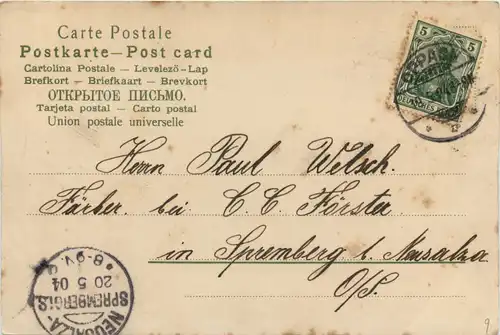 Carte Postale
Postkarte — Post card
Cartolina Postale — Levelező-Lap
Brefkort — Briefkaart — Brevkort
ОТКРЫТОЕ ПИСЬМО.
Tarjeta postal — Carto postal
Union postale universelle
5 5
Herrn Paul Welsch.
Färber. bei C. C. Förster
in Spremberg b. Neusalza
O/S.
NEUSALZA-
SPREMBERG i. S.
20 5 04
8-9 V.